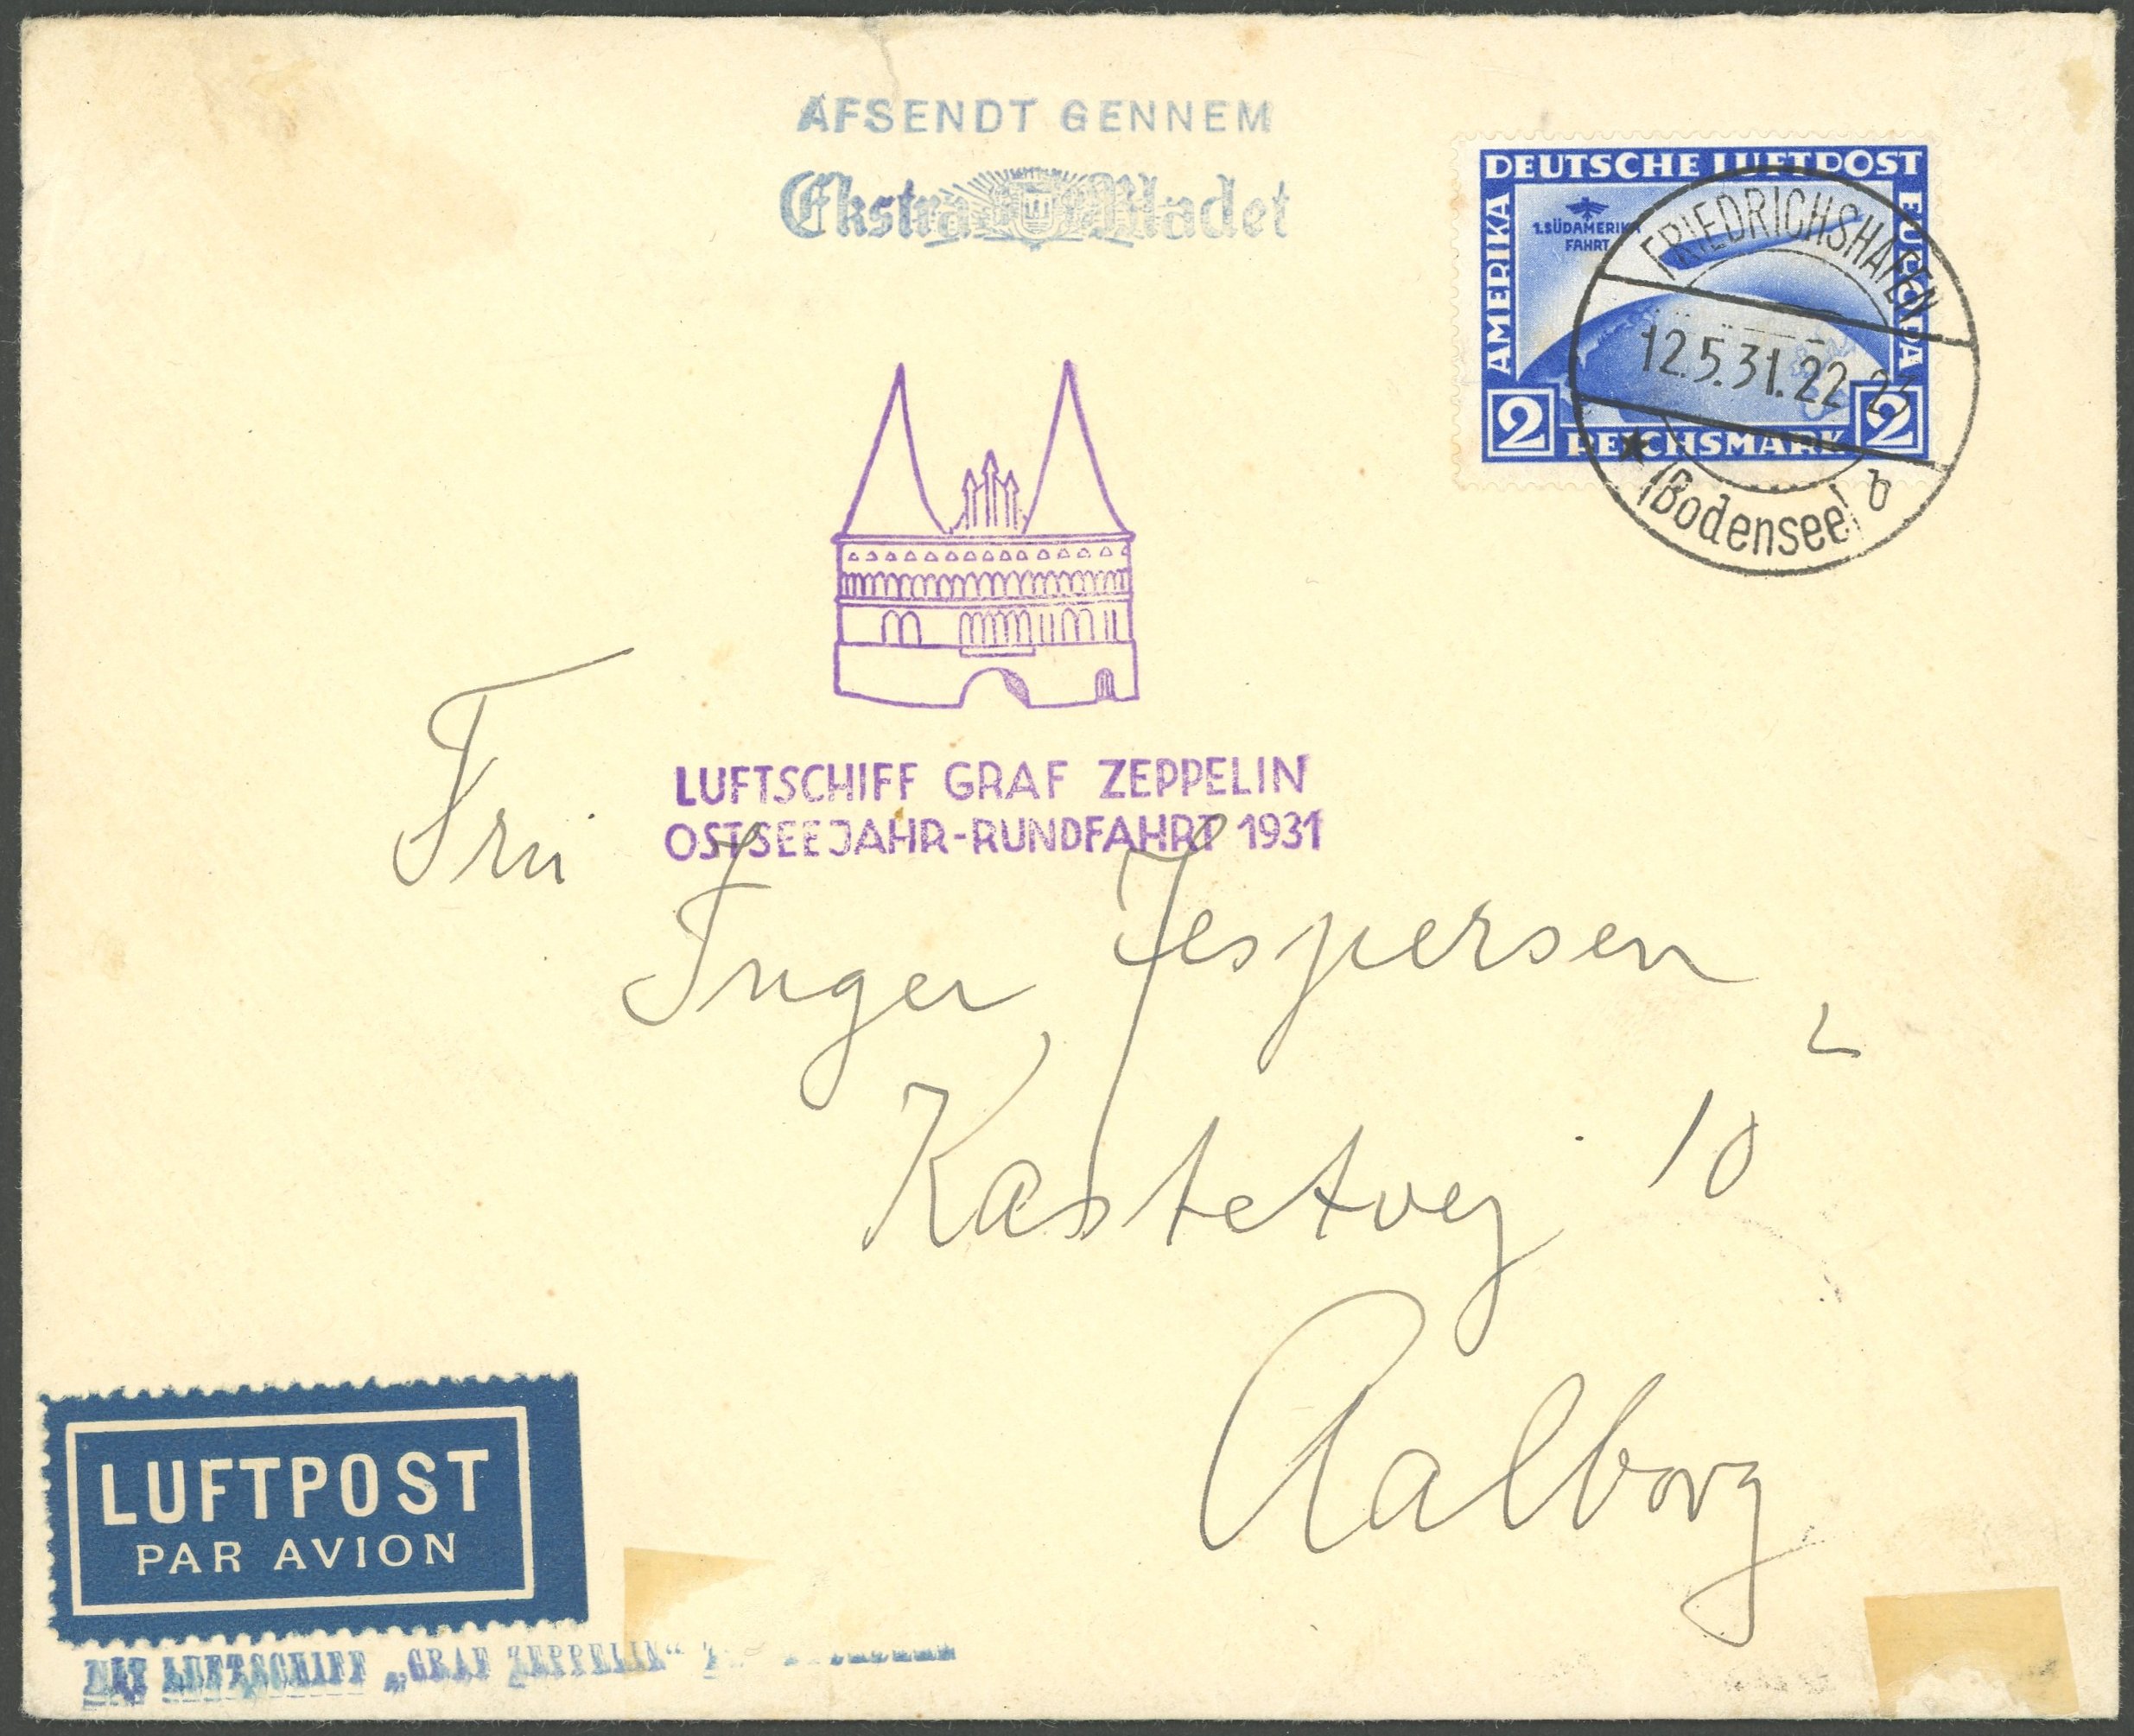 AFSENDT GENNEM
Ekstra Bladet
DEUTSCHE LUFTPOST
AMERIKA
EUROPA
1.SÜDAMERIKA
FAHRT
2 REICHSMARK 2
FRIEDRICHSHAFEN
12.5.31.22-23
(Bodensee) b
LUFTSCHIFF GRAF ZEPPELIN
OSTSEEJAHR-RUNDFAHRT 1931
Fru
Inger Jespersen
Kastetvej 10 2
Aalborg
LUFTPOST
PAR AVION
MIT LUFTSCHIFF „GRAF ZEPPELIN“